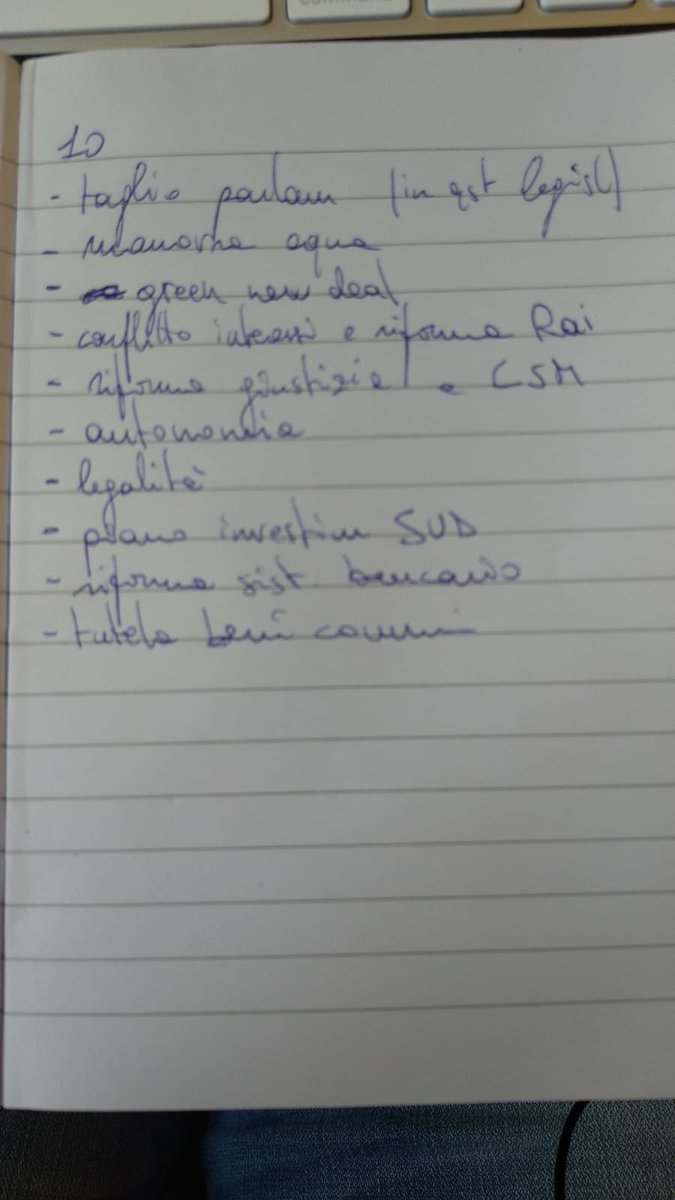 10
- taglio parlam (in qst legisl)
- manovra equa
- green new deal
- conflitto interessi e riforma Rai
- riforma giustizia e CSM
- autonomia
- legalità
- piano investim SUD
- riforma sist. bancario
- tutela beni comuni